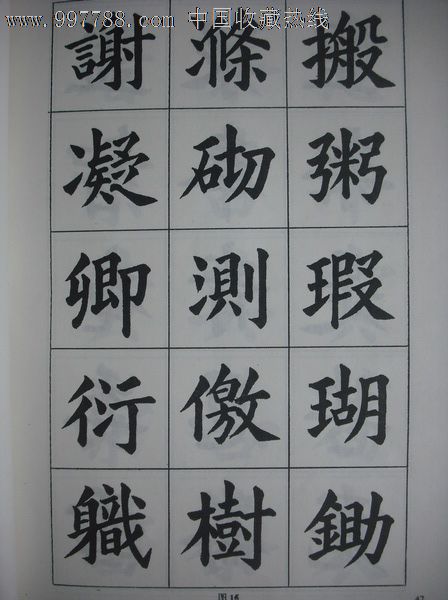 www.997788.com 中国收藏热线
謝 滌 搬
凝 砌 粥
卿 測 瑕
衍 儌 瑚
軄 樹 鋤
47